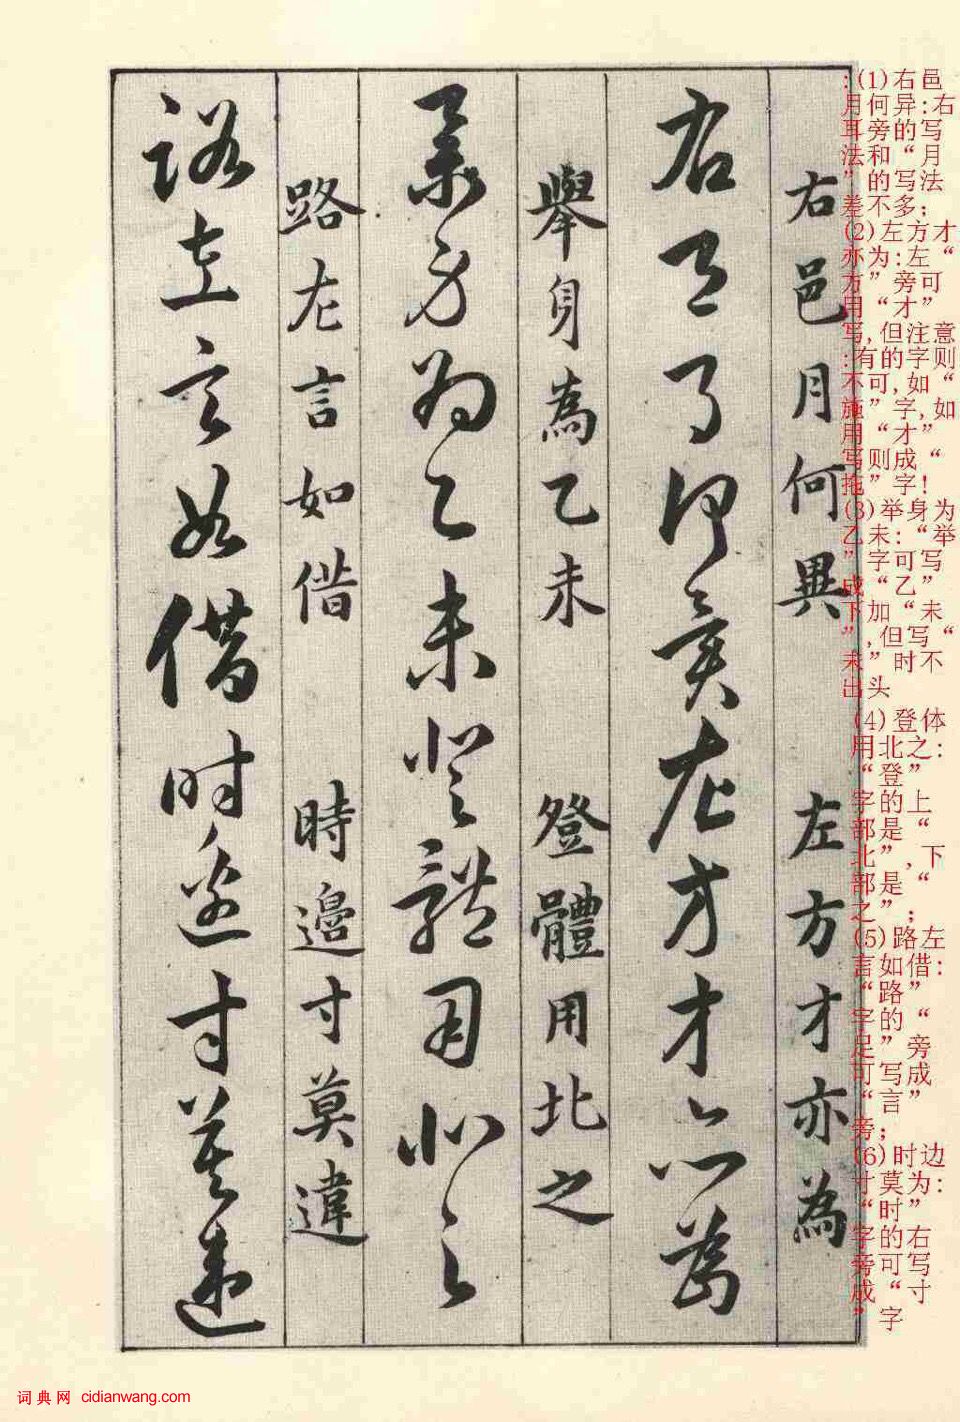 :(1)右邑
月何异:右
耳旁的写
法和“月
”的写法
差不多;
(2)左方才
亦为:左“
方”旁可
用“才”
写,但注意
:有的字则
不可,如“
施”字,如
用“才”
写则成“
拖”字!
(3)举身为
乙未:“举
”字可写
成“乙”
下加“未
”,但写“
未”时不
出头
(4)登体
用北之:
“登”
字的上
部是“
北”,下
部是“
之”;
(5)路左
言如借:
“路”
字的“
足”旁
可写成
“言”
旁;
(6)时边
寸莫为:
“时”
字的右
旁可写
成“寸
”字
右邑月何異 左方才亦為
右邑月何異左方才亦為
舉身為乙未 登體用北之
舉身為乙未登體用北之
路左言如借 時邊寸莫違
路左言如借時邊寸莫違
词典网 cidianwang.com